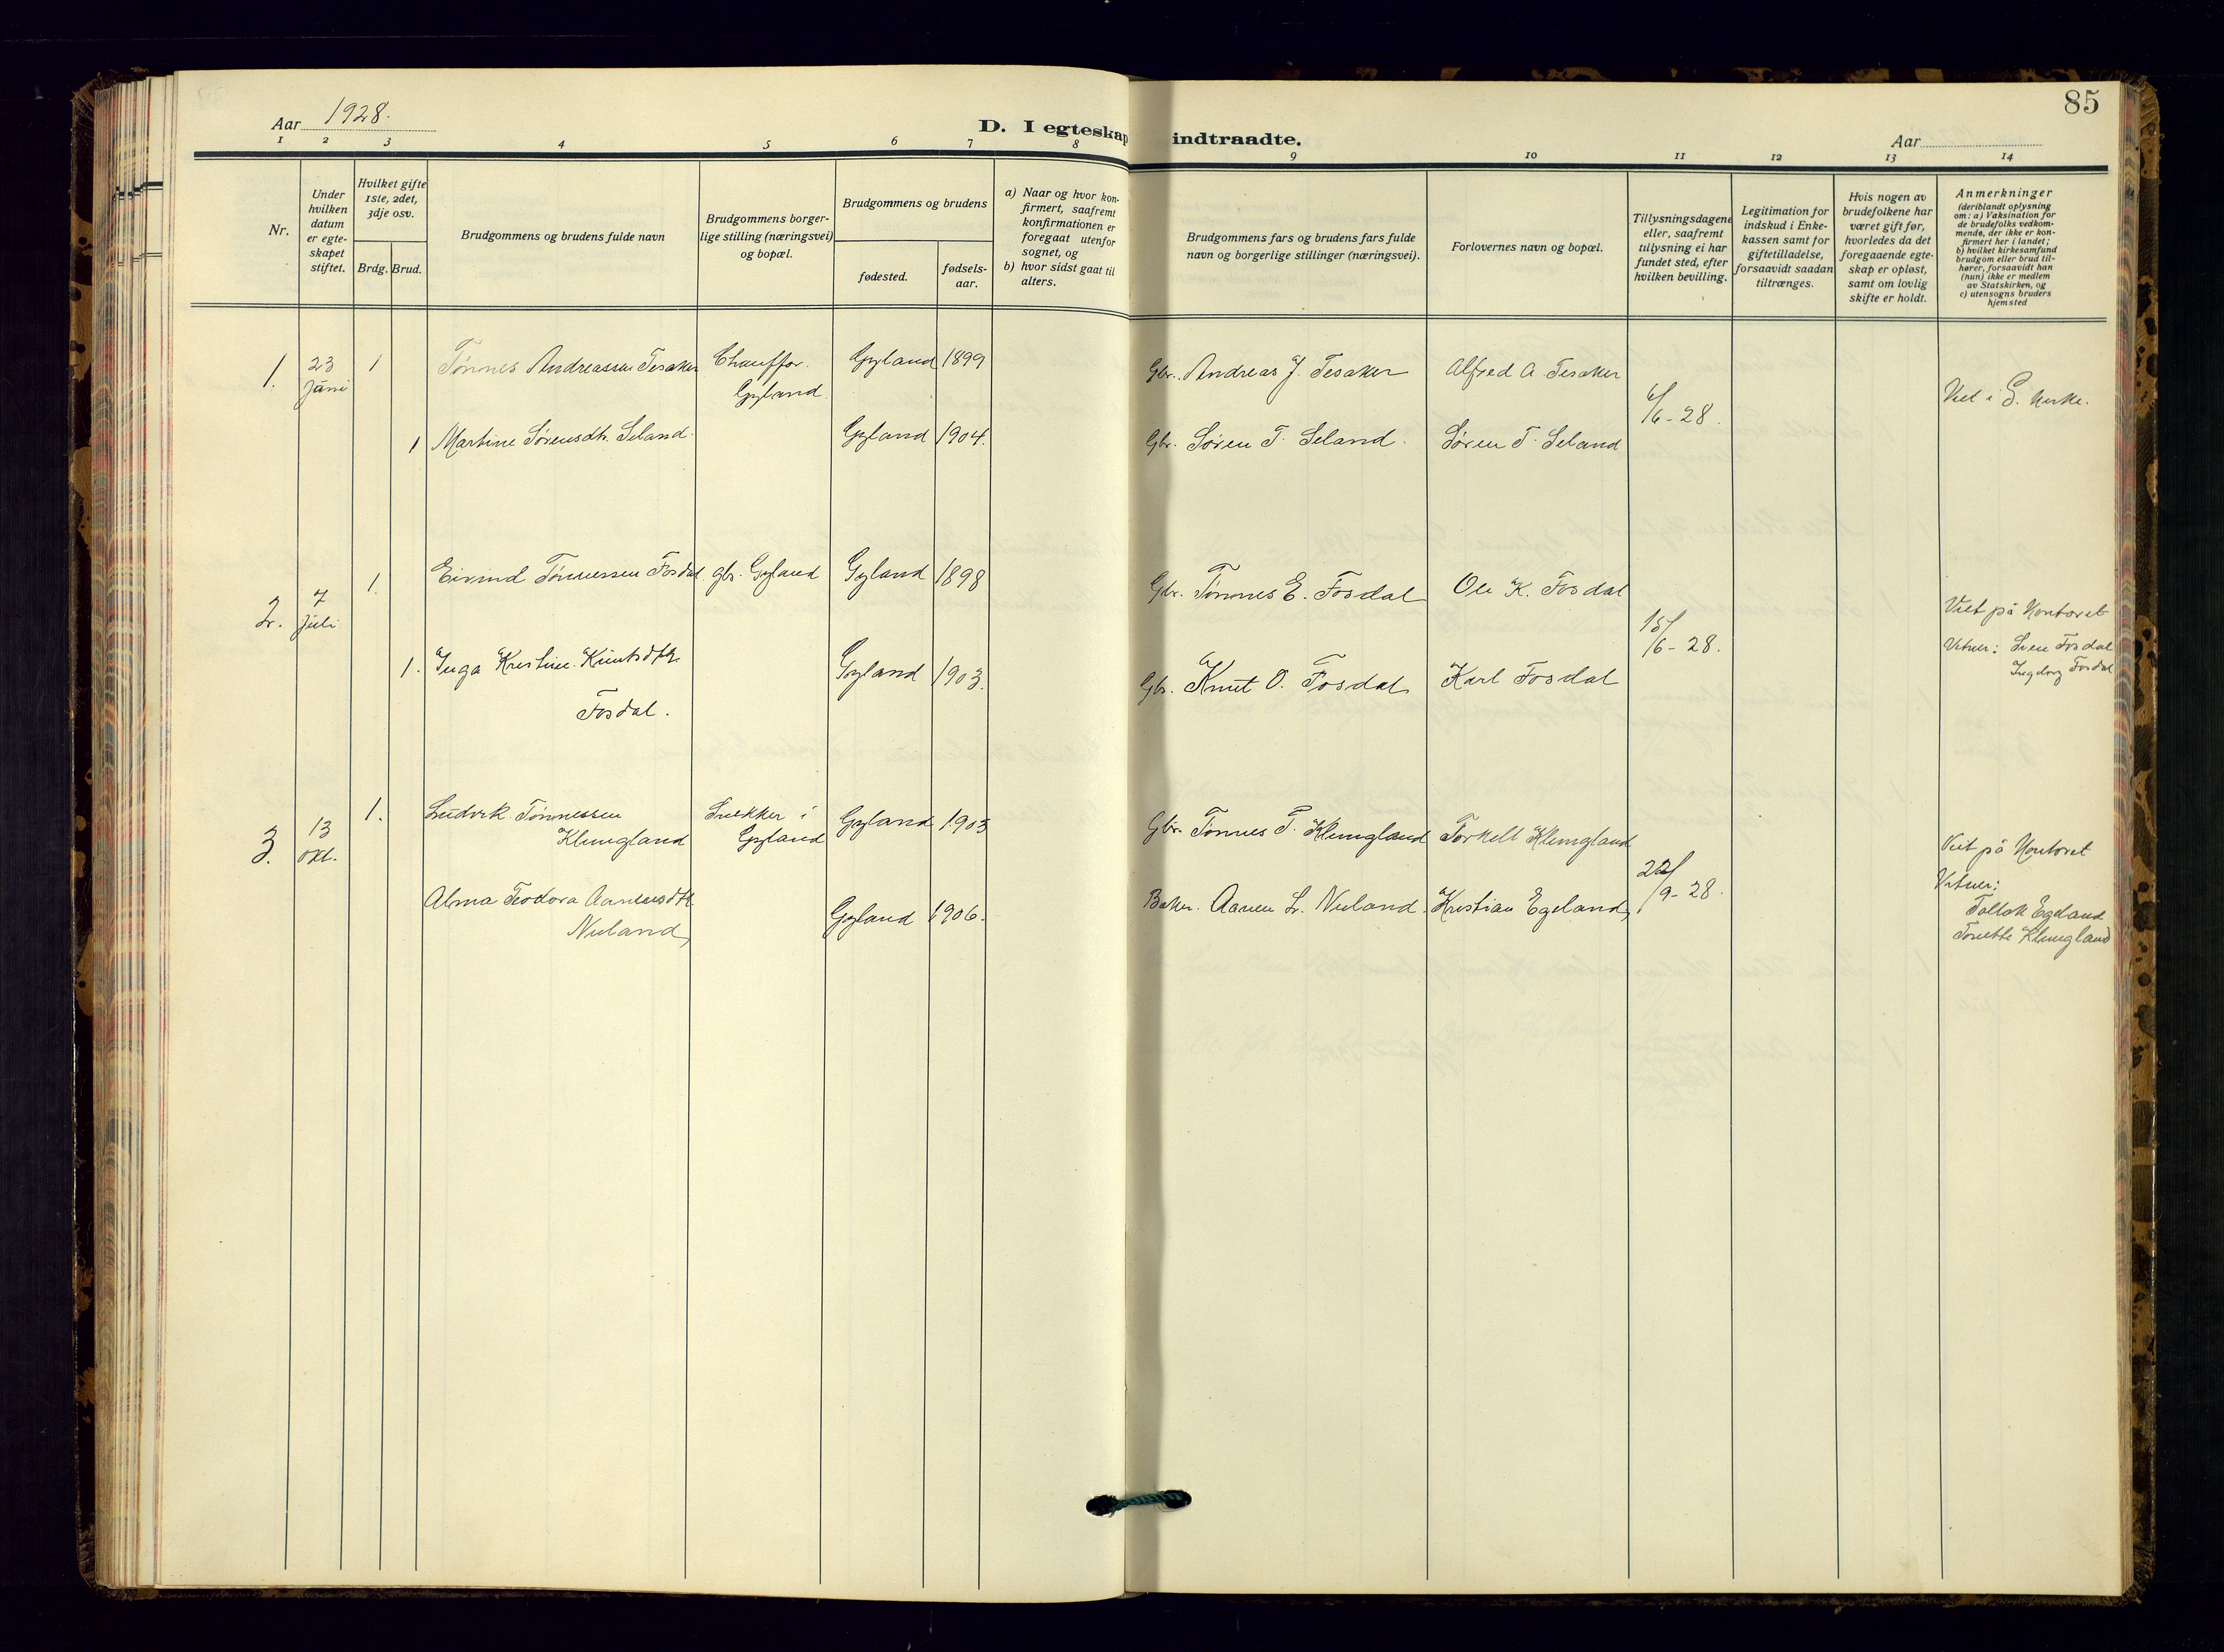 85
Aar 1928.
D. I egteskap indtraadte.
Aar
1 2 3 4 5 6 7 8 9 10 11 12 13 14
Nr.
Under
hvilken
datum
er egte-
skapet
stiftet.
Hvilket gifte
1ste, 2det,
3dje osv.
Brdg. Brud.
Brudgommens og brudens fulde navn
Brudgommens borger-
lige stilling (næringsvei)
og bopæl.
Brudgommens og brudens
fødested.
fødsels-
aar.
a) Naar og hvor kon-
firmert, saafremt
konfirmationen er
foregaat utenfor
sognet, og
b) hvor sidst gaat til
alters.
Brudgommens fars og brudens fars fulde
navn og borgerlige stillinger (næringsvei).
Forlovernes navn og bopæl.
Tillysningsdagene
eller, saafremt
tillysning ei har
fundet sted, efter
hvilken bevilling.
Legitimation for
indskud i Enke-
kassen samt for
giftetilladelse,
forsaavidt saadan
tiltrænges.
Hvis nogen av
brudefolkene har
været gift før,
hvorledes da det
foregaaende egte-
skap er opløst,
samt om lovlig
skifte er holdt.
Anmerkninger
(deriblandt oplysning
om: a) Vaksination for
de brudefolks vedkom-
mende, der ikke er kon-
firmert her i landet;
b) hvilket kirkesamfund
brudgom eller brud til-
hører, forsaavidt han
(hun) ikke er medlem
av Statskirken, og
c) utensogns bruders
hjemsted
1. 23 1 Tønnes Andreassen Tesaker Chauffør. Gyland 1899 Gbr. Andreas J. Tesaker Alfred A. Tesaker
juni Gyland
6/6-28. Viet i G. kirke.
1 Martine Sørensdtr. Seland. Gyland 1904. Gbr. Søren T. Seland. Søren T. Seland
1. Eivind Tønnessen Fosdal gbr. Gyland Gyland 1898 Gbr. Tønnes E. Fosdal Ole K. Fosdal
2. 7
juli
15/6-28. Viet på kontoret
Vitner: Sven Fosdal
Ingborg Fosdal
1. Inga Kristine Knutsdtr. Gyland 1903. Gbr. Knut O. Fosdal Karl Fosdal
Fosdal.
1. Ludvik Tønnessen Snekker i Gyland 1903 Gbr. Tønnes T. Klungland Torkell Klungland
Klungland Gyland
3. 13
okt.
22/9-28. Viet på kontoret
Vitner:
Tallak Egeland
Tonette Klungland
Alma Teodora Aanensdtr. Gyland 1906. Baker. Aanen L. Nuland. Kristian Egeland
Nuland